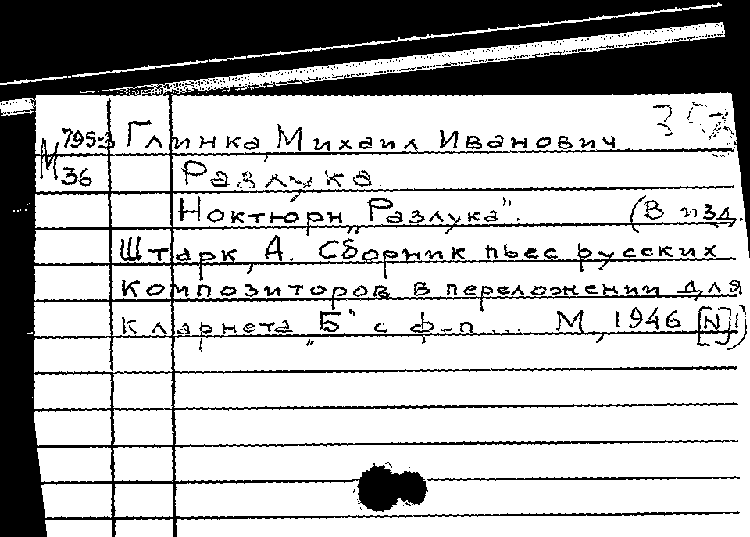 М 795-3 Глинка, Михаил Иванович
36 Разлука
Ноктюрн „Разлука". (В изд.
Штарк, А. Сборник пьес русских
композиторов в переложении для
кларнета „Б" с ф-п... М., 1946 [N])